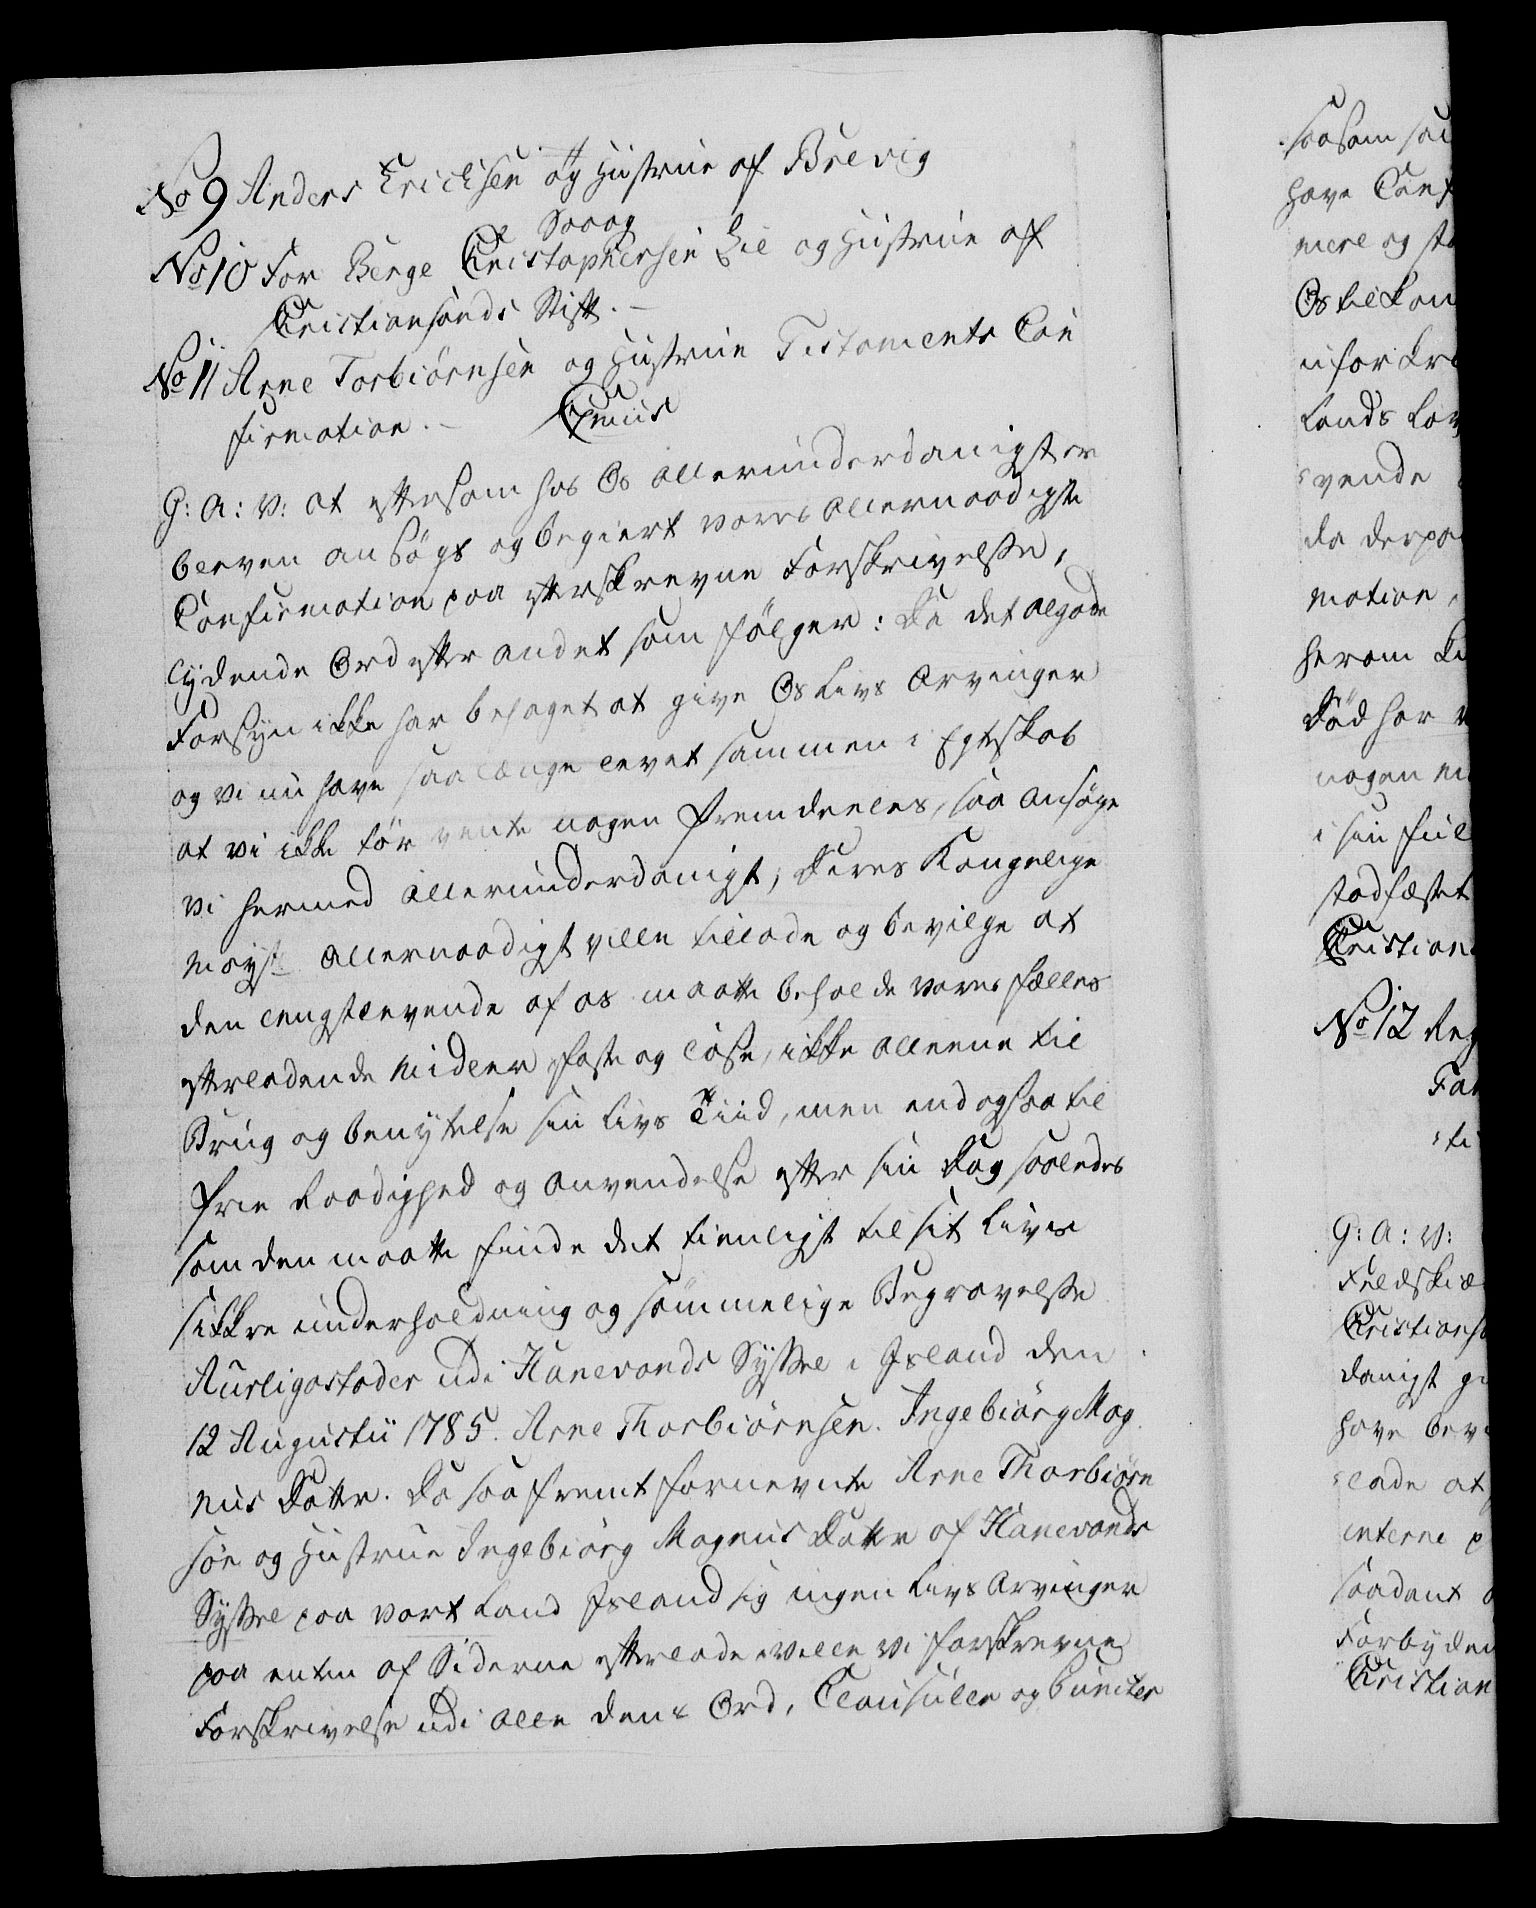 No 9 Anders Erichsen og Hustrue af Brevig
No 10 For Berge Christophersen Lie og Hustrue af
Christiansands Stift. -
No 11 Arne Torbiørnsen og Hustrue Testaments Con
firmation. -
G: A: V: at eftersom hos Os allerunderdanigst er
bleven ansøgt og begiert vores allernaadigste
Confirmation paa efterskrevne Forskrivelse,
lydende Ord efter andet som følger: Da det algode
Forsyn ikke har behaget at give Os Livs Arvinger
og vi nu have saa længe levet sammen i Egteskab
at vi ikke tør vente nogen fremdeeles, saa ansøge
vi hermed allerunderdanigst, Deres Kongelige
Mayst allernaadigst ville tillade og bevilge at
den lengstlevende af os maatte beholde vores fælles
efterladende Midler faste og løse, ikke alleene til
Brug og benyttelse sin Livs Tiid, men endogsaa til
frie Raadighed og anvendelse efter sin Dag saaledes
som den maatte finde det tienligst til sit Livs
sikkre underholdning og sømmelige Begravelse
Aurligastader udi Hunevands Syssel i Island den
12 Augustii 1785. Arne Thorbiørnsen. Ingebiørg Mag
nus Datter. Da saafremt fornevnte Arne Thorbiørn
søn og Hustrue Ingebiørg Magnus Datter af Hunevands
Syssel paa vort Land Island sig ingen Livs Arvinger
paa enten af Siderne efterlade, ville vi forskrevne
Forskrivelse udi alle dens Ord, Clausuller og Puncter
saasom saa
have Conf
mere og sta
Os til kon
uforkr
Lands Lov
vende
da derpaa
mation,
herom
Død har
nogen
i sin ful
stadfæstet
Christian
No 12
G: A: V:
Feldskiæ
Christians
danigst
have bev
lade at
interne
saadant
Forbyden
Christian